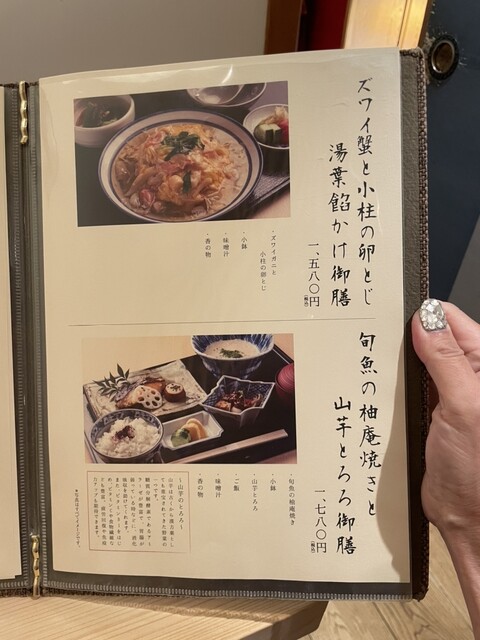 ズワイ蟹と小柱の卵とじ
湯葉餡かけ御膳
一、五八〇円
(税込)
・ズワイガニと
小柱の卵とじ
・小鉢
・味噌汁
・香の物
旬魚の柚庵焼きと
山芋とろろ御膳
一、七八〇円
(税込)
・旬魚の柚庵焼き
・小鉢
・山芋とろろ
・ご飯
・味噌汁
・香の物
〜山芋のとろろ〜